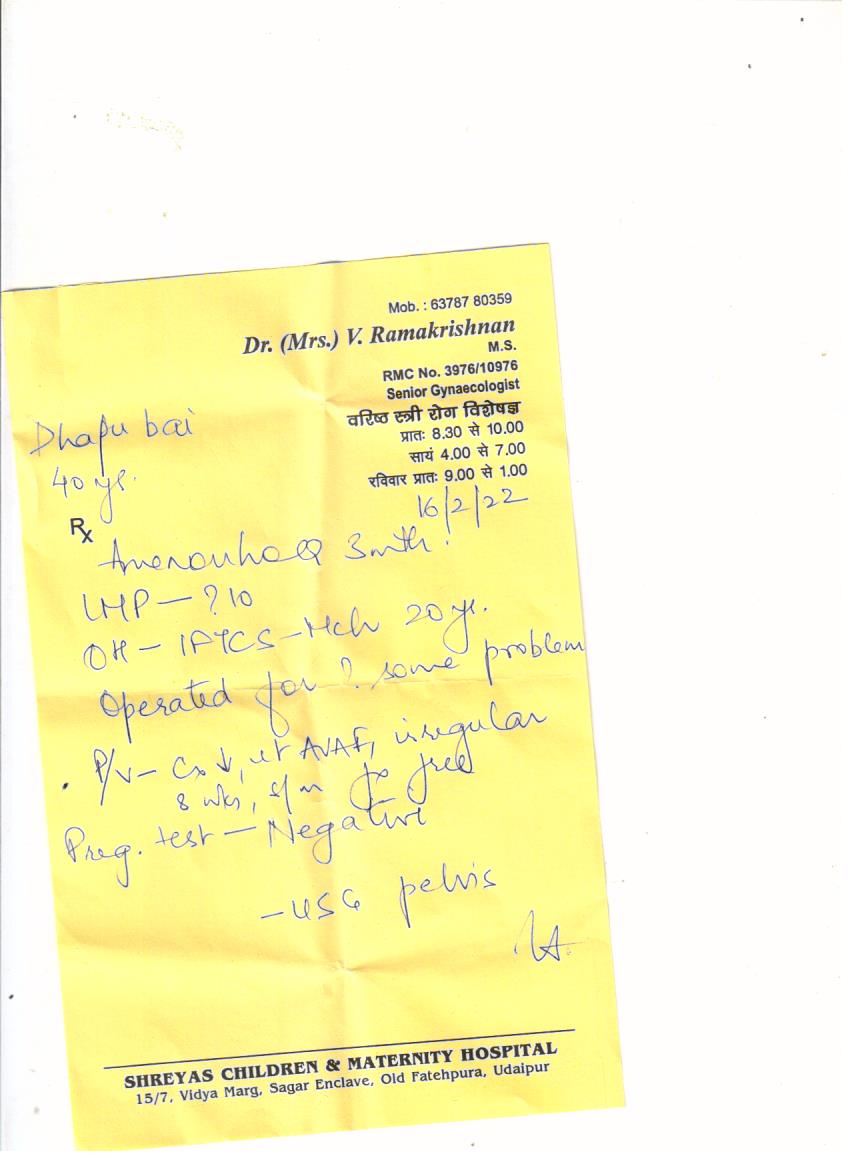 Mob. : 63787 80359
Dr. (Mrs.) V. Ramakrishnan
M.S.
RMC No. 3976/10976
Senior Gynaecologist
वरिष्ठ स्त्री रोग विशेषज्ञ
प्रातः 8.30 से 10.00
सायं 4.00 से 7.00
रविवार प्रातः 9.00 से 1.00
Dhapu bai
40 yr.
16/2/22
Rx
3 mth.
LMP - ? 10
OH - 20 yr.
Operated for ? some problem
P/V - Cx ↓, ut AVAF, irregular
8 wks, fx free
Preg. test - Negative
- USG pelvis
SHREYAS CHILDREN & MATERNITY HOSPITAL
15/7, Vidya Marg, Sagar Enclave, Old Fatehpura, Udaipur